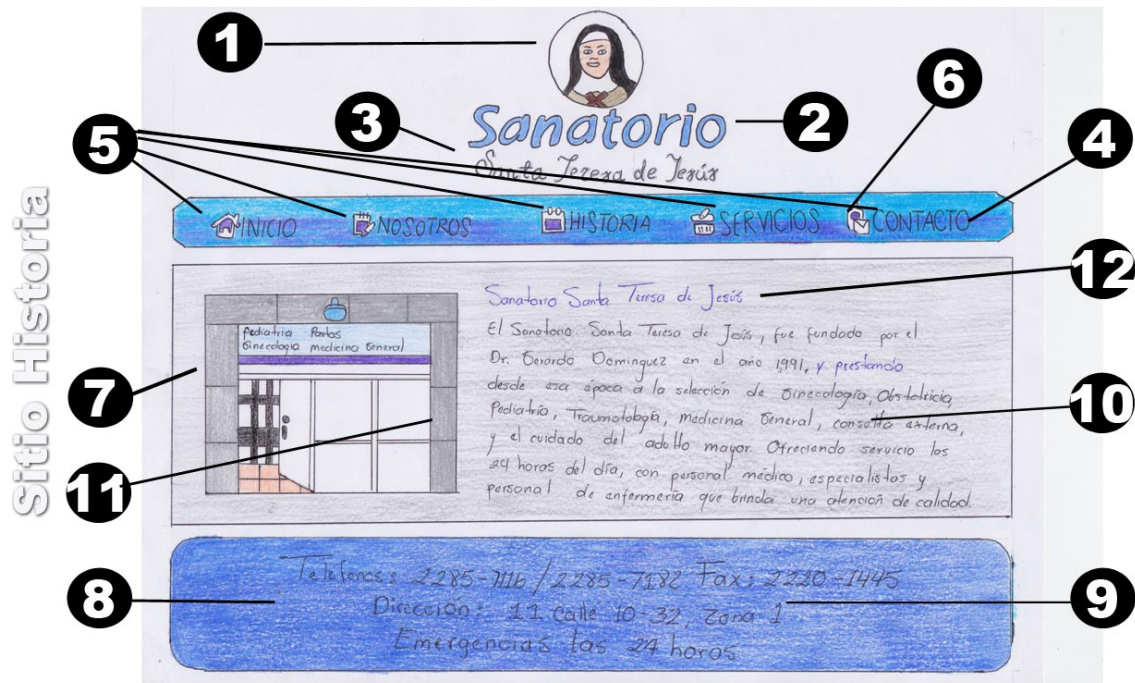 Sitio Historia
1
2
3
4
5
6
7
8
9
10
11
12
Sanatorio
Santa Teresa de Jesús
INICIO NOSOTROS HISTORIA SERVICIOS CONTACTO
Pediatria Partos
Ginecologia medicina General
Sanatorio Santa Teresa de Jesús
El Sanatorio Santa Teresa de Jesús, fue fundado por el
Dr. Gerardo Dominguez en el año 1,991, y prestando
desde esa época a la selección de Ginecología, Obstetricia,
Pediatría, Traumatología, medicina General, consulta externa,
y el cuidado del adulto mayor. Ofreciendo servicio las
24 horas del día, con personal médico, especialistas y
personal de enfermería que brinda una atención de calidad.
Teléfonos: 2285-7116/2285-7182 Fax: 2220-1445
Dirección: 11 calle 10-32, Zona 1
Emergencias las 24 horas